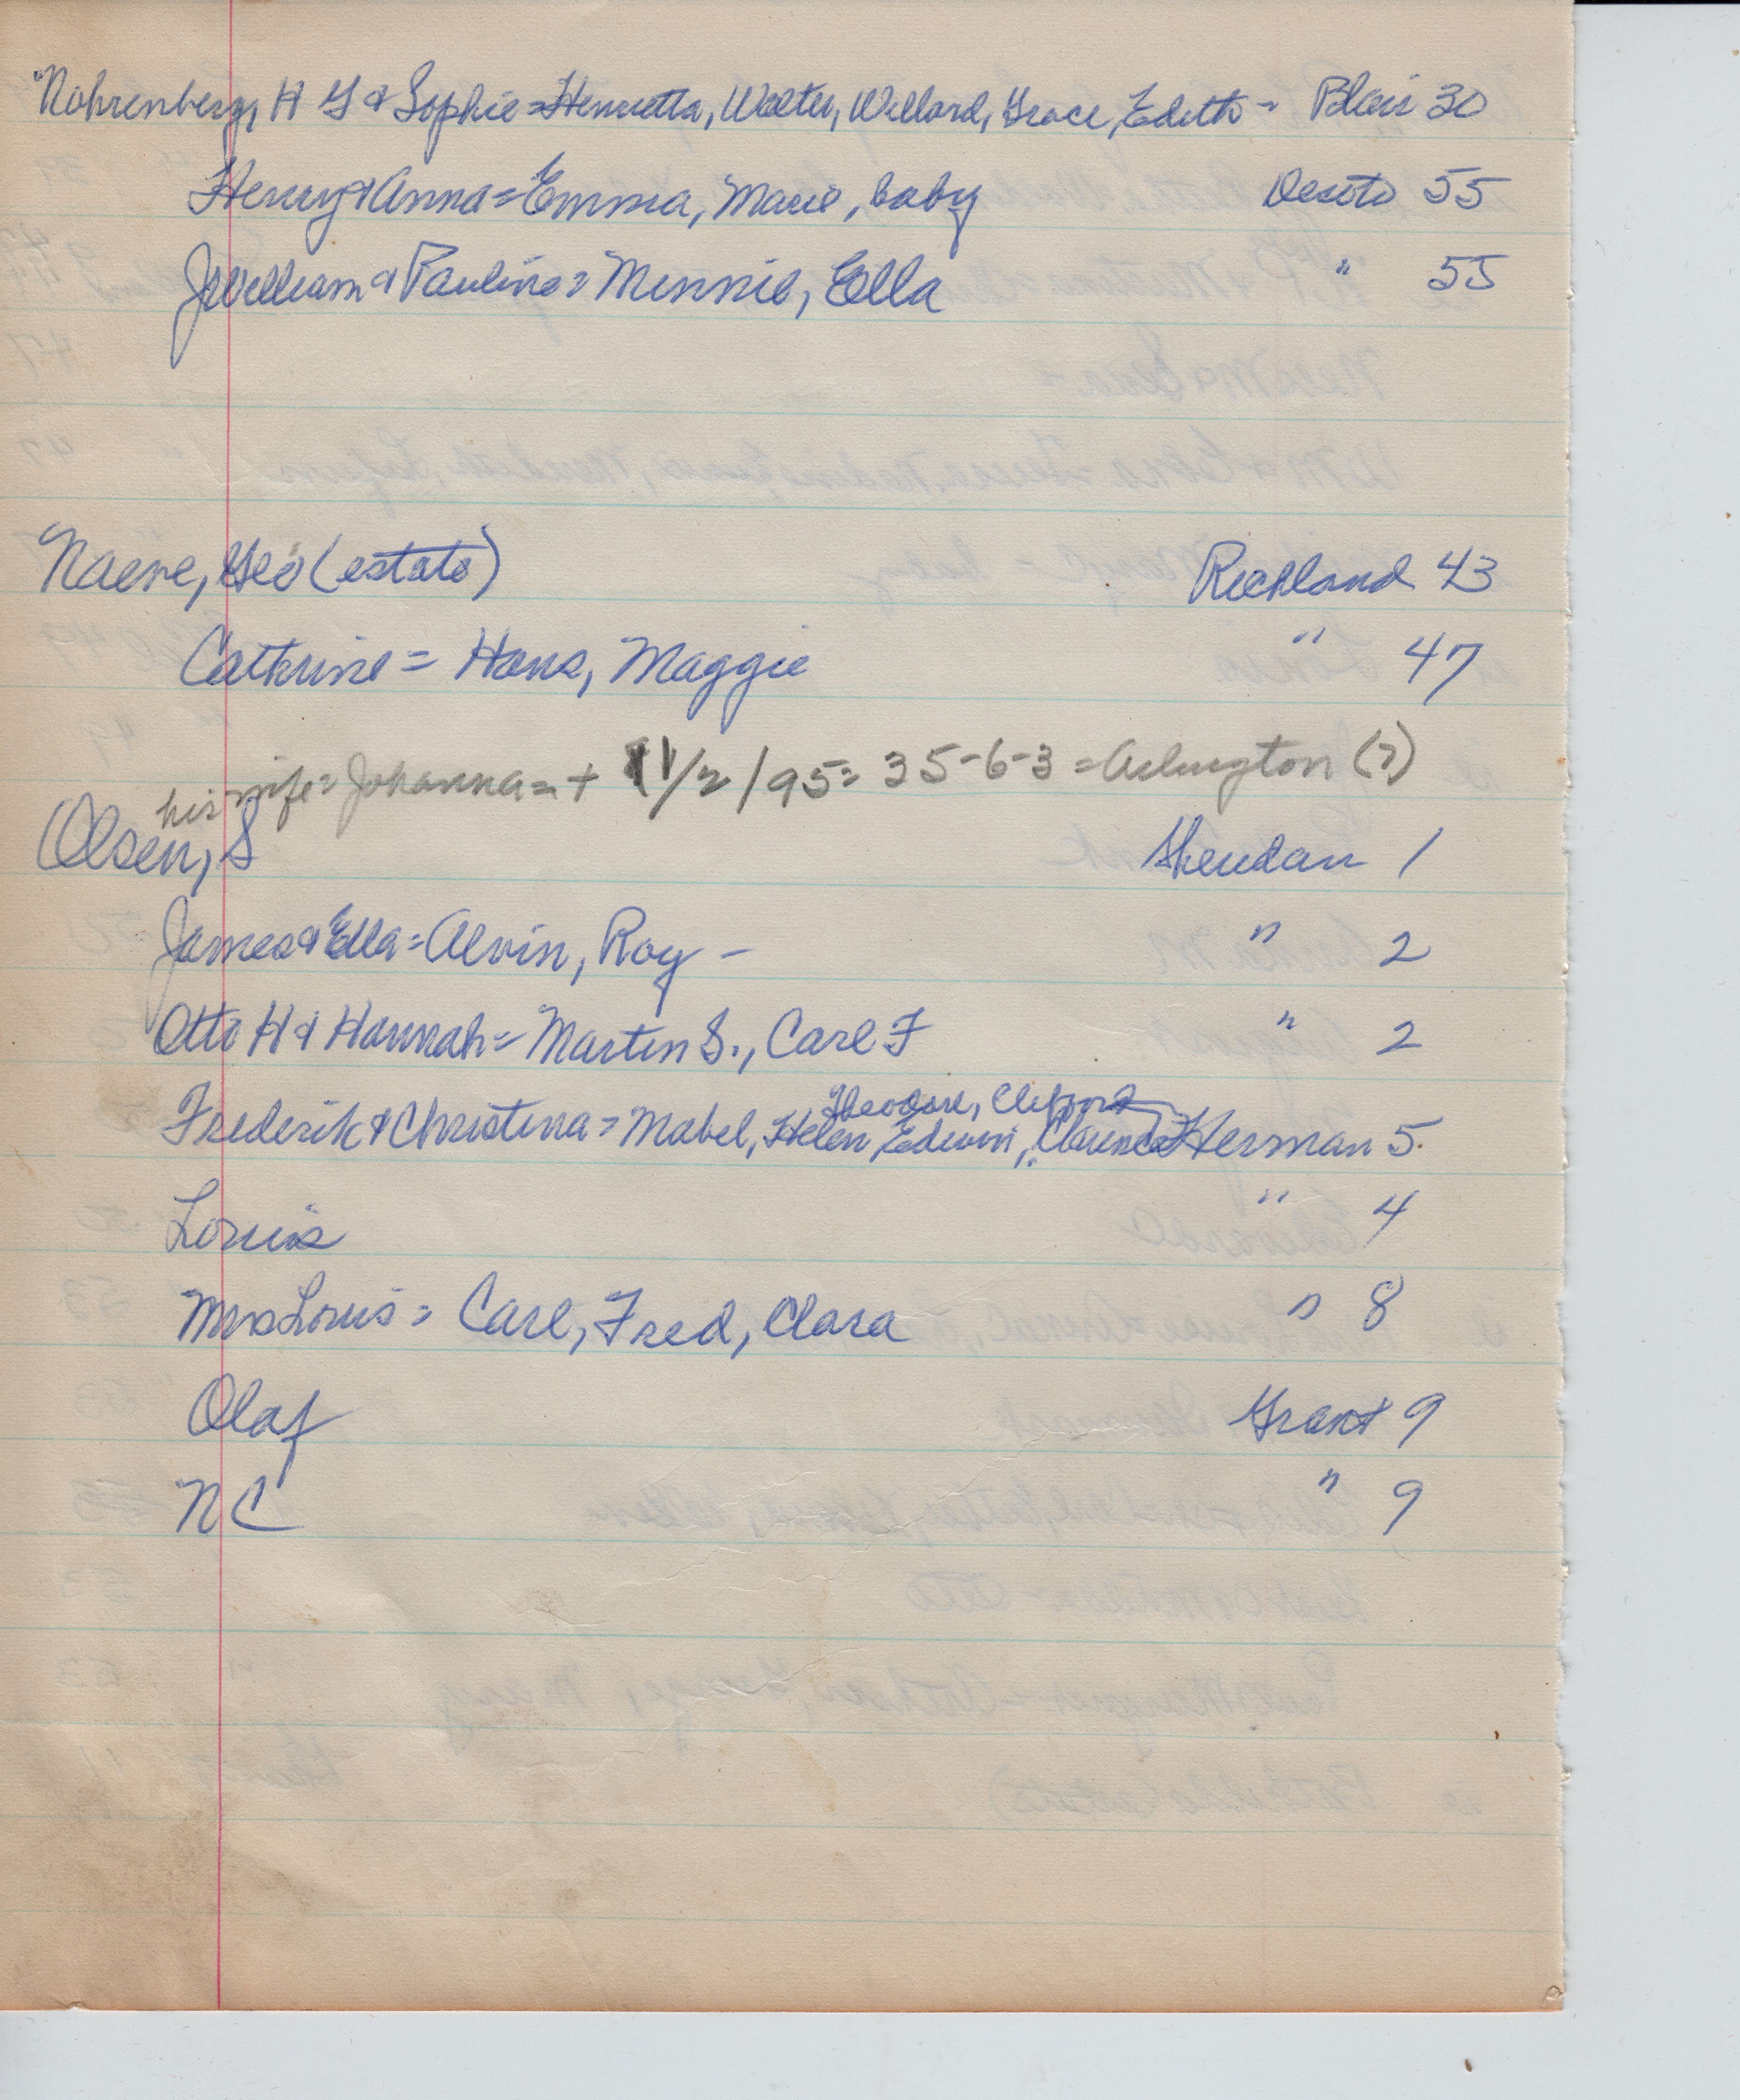 Nohrenberg, H G & Sophie = Henrietta, Walter, Willard, Grace, Edith - Blair 30
Henry & Anna = Emma, Marie, baby Desoto 55
J William & Pauline = Minnie, Ella " 55
Naeve, Geo (estate) Richland 43
Cathrine = Hans, Maggie " 47
his wife = Johanna = + 11/2/95 = 35-6-3 = Arlington (?)
Olsen, S Sheridan 1
James & Ella = Alvin, Roy - " 2
Otto H & Hannah = Martin S., Carl F " 2
Theodore, Clifford
Frederik & Christina = Mabel, Helen, Edwin, Clarence Herman 5.
Louis " 4
Mrs Louis = Carl, Fred, Clara " 8
Olaf Grant 9
N C " 9